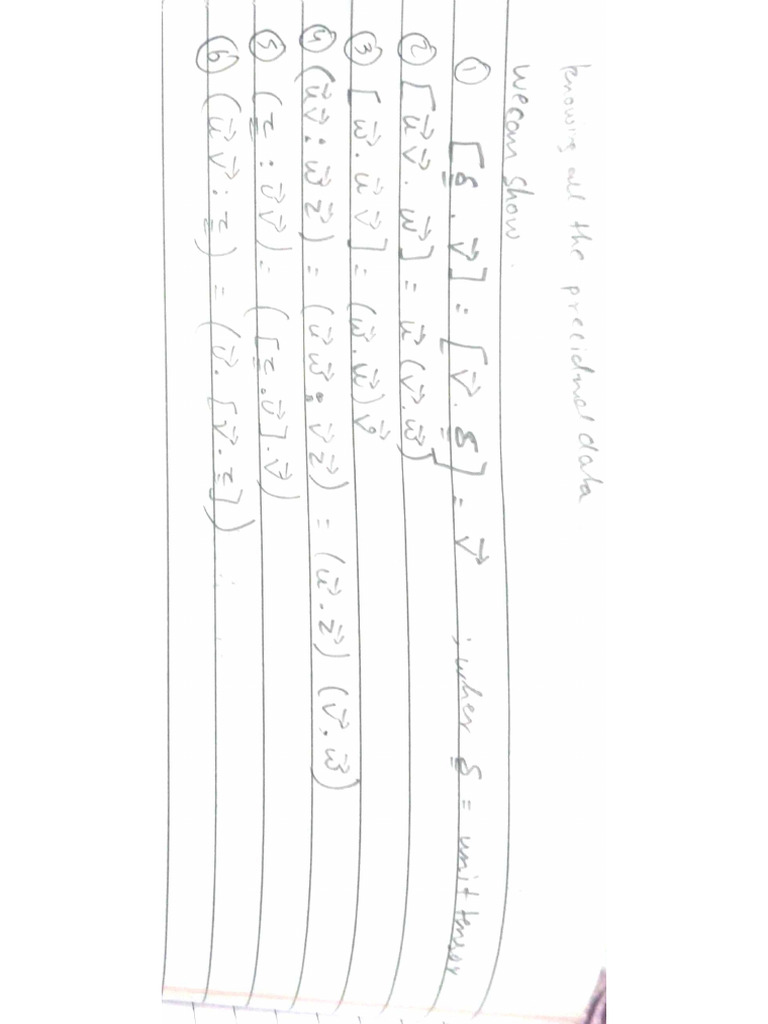 knowing all the precidnel data
we can show.
① [δ . v⃗] = [v⃗ . δ] = v⃗ ; wher δ = unit tensor
② [u⃗v⃗ . w⃗] = u⃗ (v⃗.w⃗)
③ [w⃗ . u⃗ v⃗] = (w⃗.u⃗) v⃗
④ (u⃗v⃗ : w⃗ z⃗) = (u⃗w⃗ : v⃗ z⃗) = (u⃗ . z⃗) (v⃗ . w⃗)
⑤ (τ : u⃗ v⃗) = ([τ . u⃗] . v⃗)
⑥ (u⃗ v⃗ : τ) = (u⃗ . [v⃗ . τ])